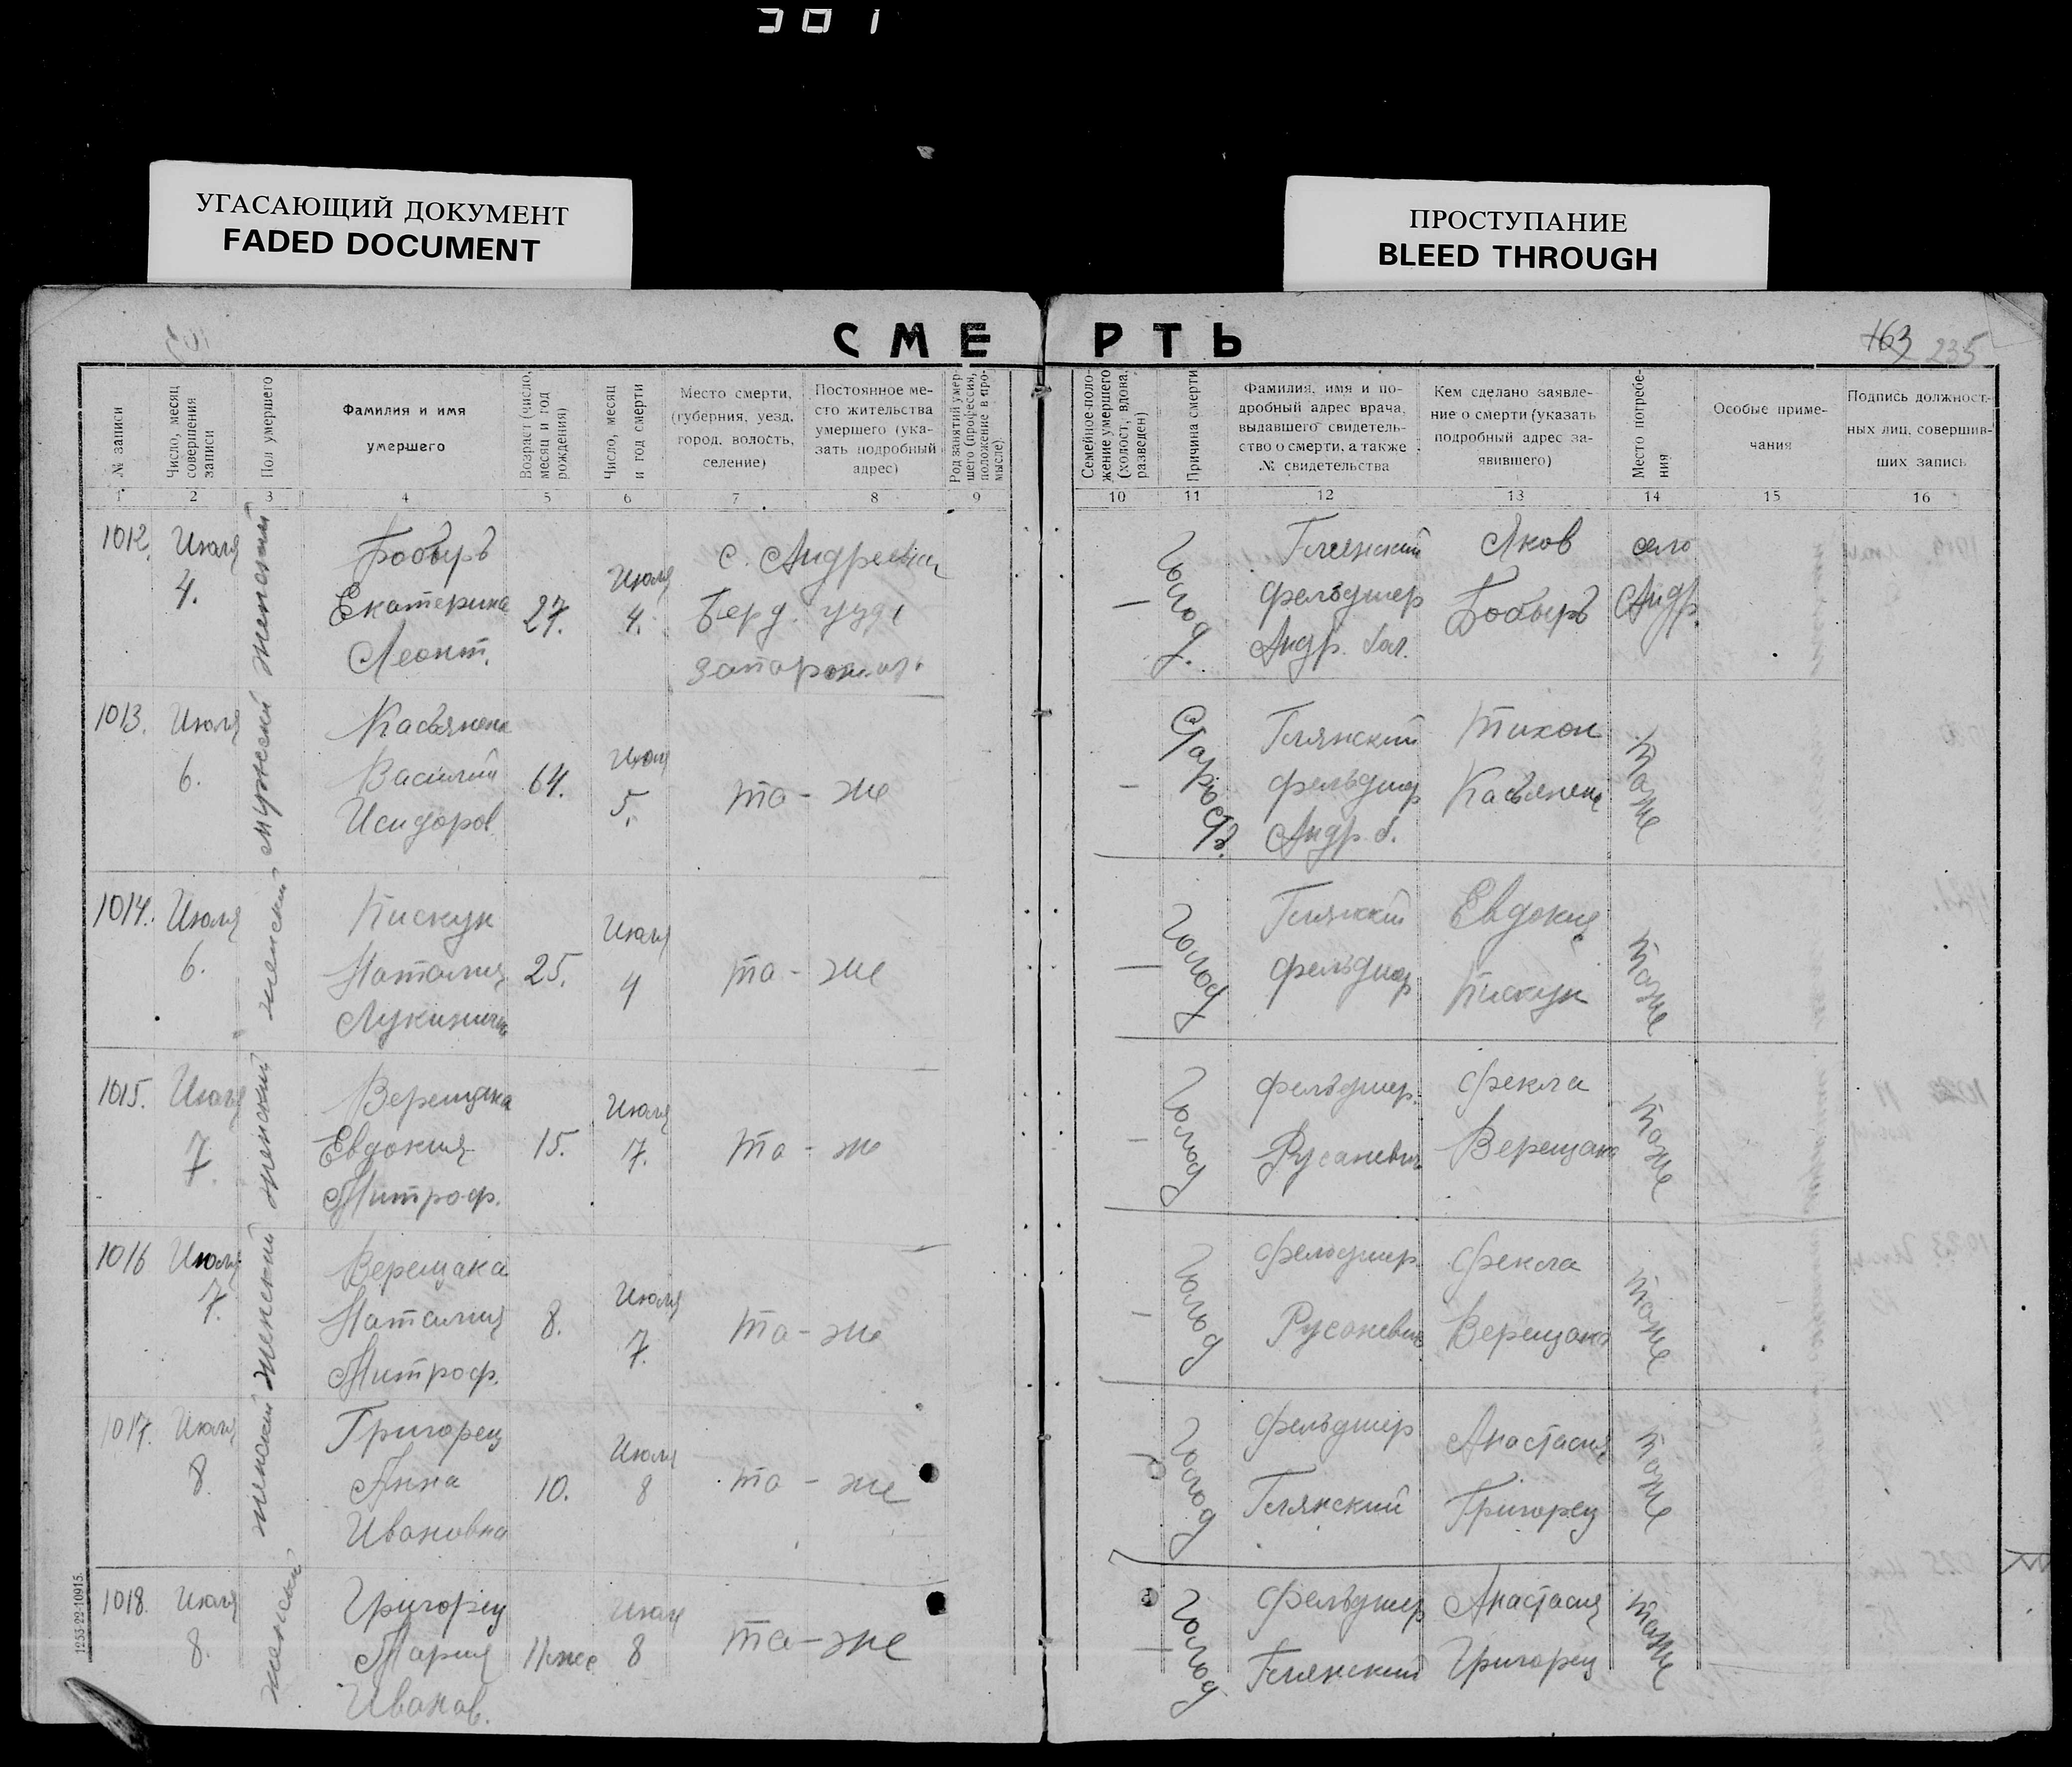 301
УГАСАЮЩИЙ ДОКУМЕНТ
FADED DOCUMENT
ПРОСТУПАНИЕ
BLEED THROUGH
СМЕРТЬ
163 235
№ записи
Число, месяц совершения записи
Пол умершего
Фамилия и имя умершего
Возраст (число, месяц и год рождения)
Число, месяц и год смерти
Место смерти, (губерния, уезд, город, волость, селение)
Постоянное место жительства умершего (указать подробный адрес)
Род занятий умершего (профессия, положение в промысле).
Семейное положение умершего (холост, вдова, разведен)
Причина смерти
Фамилия, имя и подробный адрес врача, выдавшего свидетельство о смерти, а также № свидетельства
Кем сделано заявление о смерти (указать подробный адрес заявившего)
Место погребения
Особые примечания
Подпись должност. ных лиц, совершивших запись
1 2 3 4 5 6 7 8 9 10 11 12 13 14 15 16
1012. Июля 4. женский Бобырь Екатерина Леонт. 27. Июля 4. с. Андреевки Берд. уезда — Голод. Глянский фельдшер Андр. Яков Бобырь село Андр.
1013. Июля 6. мужской Касьяненко Василий Исидоров. 64. Июля 5. то-же — Старость. Глянский фельдшер Андр. Тихон Касьяненко тоже
1014. Июля 6. женский Пискун Наталия Лукинична 25. Июля 4 то-же — Голод Глянский фельдшер Евдокия Пискун тоже
1015. Июля 7. женский Верещака Евдокия Митроф. 15. Июля 7. то-же — Голод фельдшер. Русаневич Фекла Верещака тоже
1016 Июля 7. женский Верещака Наталия Митроф. 8. Июля 7. то-же — Голод фельдшер. Русаневич Фекла Верещака тоже
1017. Июля 8. женский Григорец Анна Ивановна 10. Июля 8 то-же Голод фельдшер Глянский Анастасия Григорец тоже
1018. Июля 8. женский Григорец Мария Иванов. 11 мес Июля 8 то-же — Голод фельдшер Глянский Анастасия Григорец тоже
1253-22-10915.